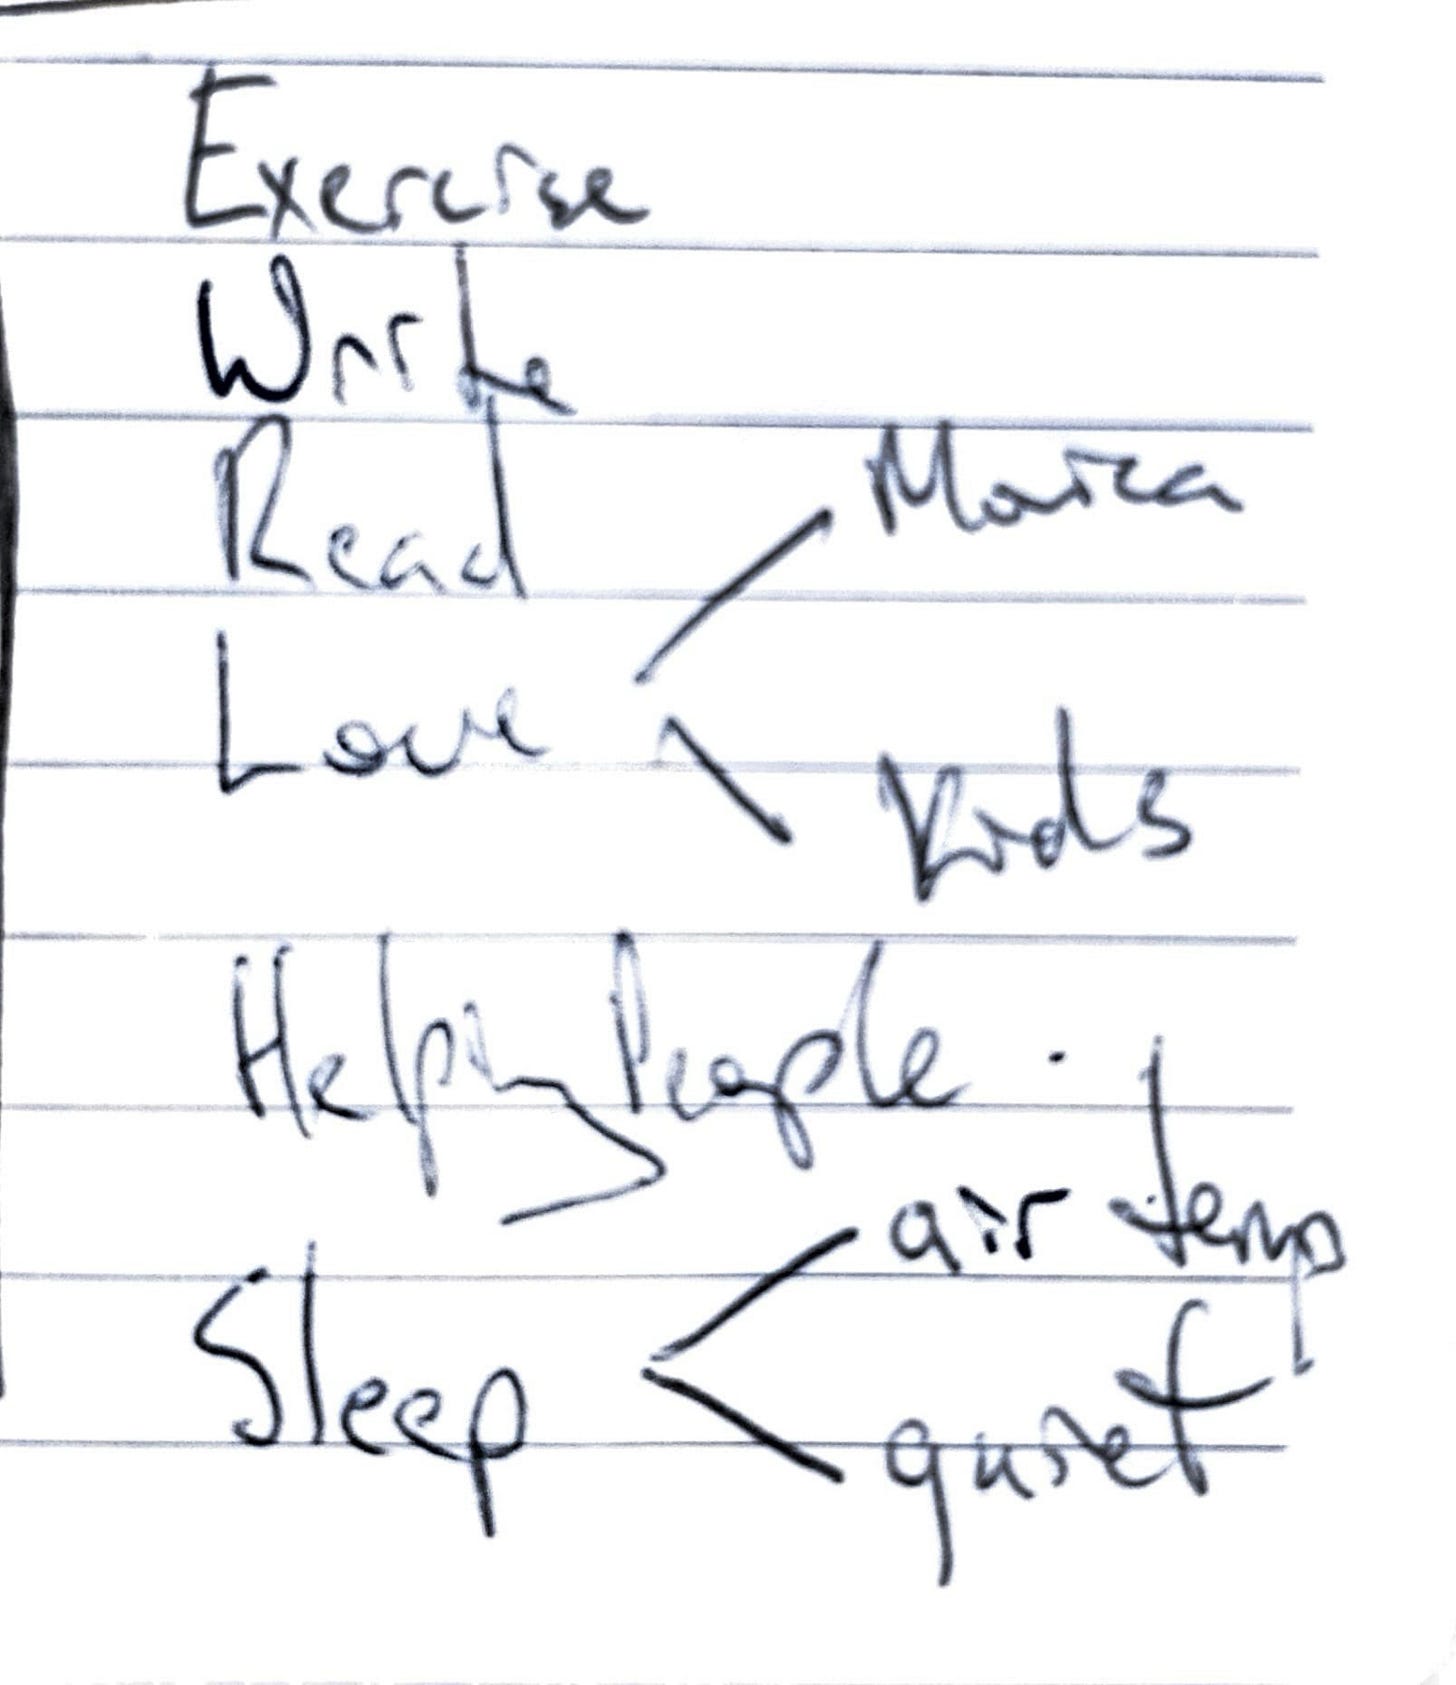 Exercise
Write
Read
Love
Kids
Help People.
Sleep
air temp
quiet